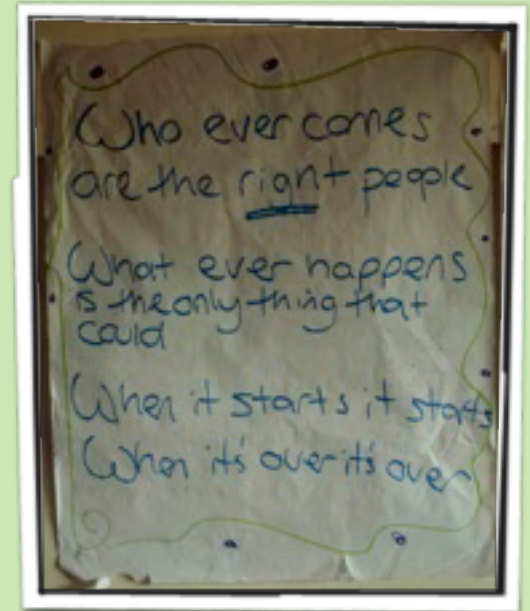 Who ever comes
are the right people
What ever happens
is the only thing that
could
When it starts it starts
When it's over it's over